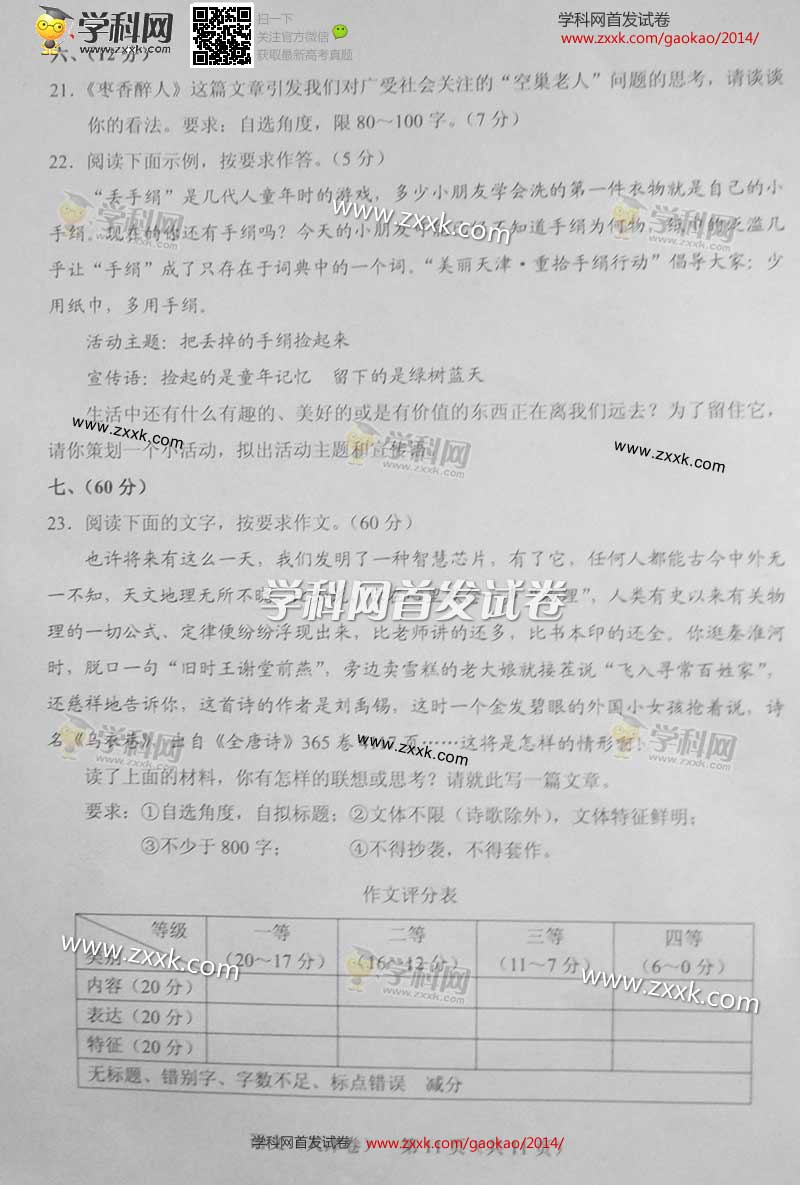 学科网
扫一下
关注官方微信
获取最新高考真题
学科网首发试卷
www.zxxk.com/gaokao/2014/
六、(12分)
21.《枣香醉人》这篇文章引发我们对广受社会关注的“空巢老人”问题的思考,请谈谈
你的看法。要求:自选角度,限80～100字。(7分)
22．阅读下面示例,按要求作答。(5分)
“丢手绢”是几代人童年时的游戏,多少小朋友学会洗的第一件衣物就是自己的小
手绢。现在的你还有手绢吗?今天的小朋友 不知道手绢为何物 泛滥几
乎让“手绢”成了只存在于词典中的一个词。“美丽天津·重拾手绢行动”倡导大家:少
用纸巾,多用手绢。
活动主题:把丢掉的手绢捡起来
宣传语:捡起的是童年记忆 留下的是绿树蓝天
生活中还有什么有趣的、美好的或是有价值的东西正在离我们远去?为了留住它,
请你策划一个小活动,拟出活动主题和宣传语
七、(60分)
23．阅读下面的文字,按要求作文。(60分)
也许将来有这么一天,我们发明了一种智慧芯片,有了它,任何人都能古今中外无
一不知,天文地理无所不晓 理”,人类有史以来有关物
理的一切公式、定律便纷纷浮现出来,比老师讲的还多,比书本印的还全。你逛秦淮河
时,脱口一句“旧时王谢堂前燕”,旁边卖雪糕的老大娘就接茬说“飞入寻常百姓家”,
还慈祥地告诉你,这首诗的作者是刘禹锡,这时一个金发碧眼的外国小女孩抢着说,诗
名《乌衣巷》,出自《全唐诗》365卷 页……这将是怎样的情形啊!
读了上面的材料,你有怎样的联想或思考?请就此写一篇文章。
要求:①自选角度,自拟标题;②文体不限(诗歌除外),文体特征鲜明;
③不少于800字; ④不得抄袭,不得套作。
作文评分表
等级 一等 二等 三等 四等
类别 (20～17分) (16～12分) (11～7分) (6～0分)
内容(20分)
表达(20分)
特征(20分)
无标题、错别字、字数不足、标点错误 减分
学科网首发试卷
www.zxxk.com/gaokao/2014/
www.zxxk.com
学科网
学科网首发试卷